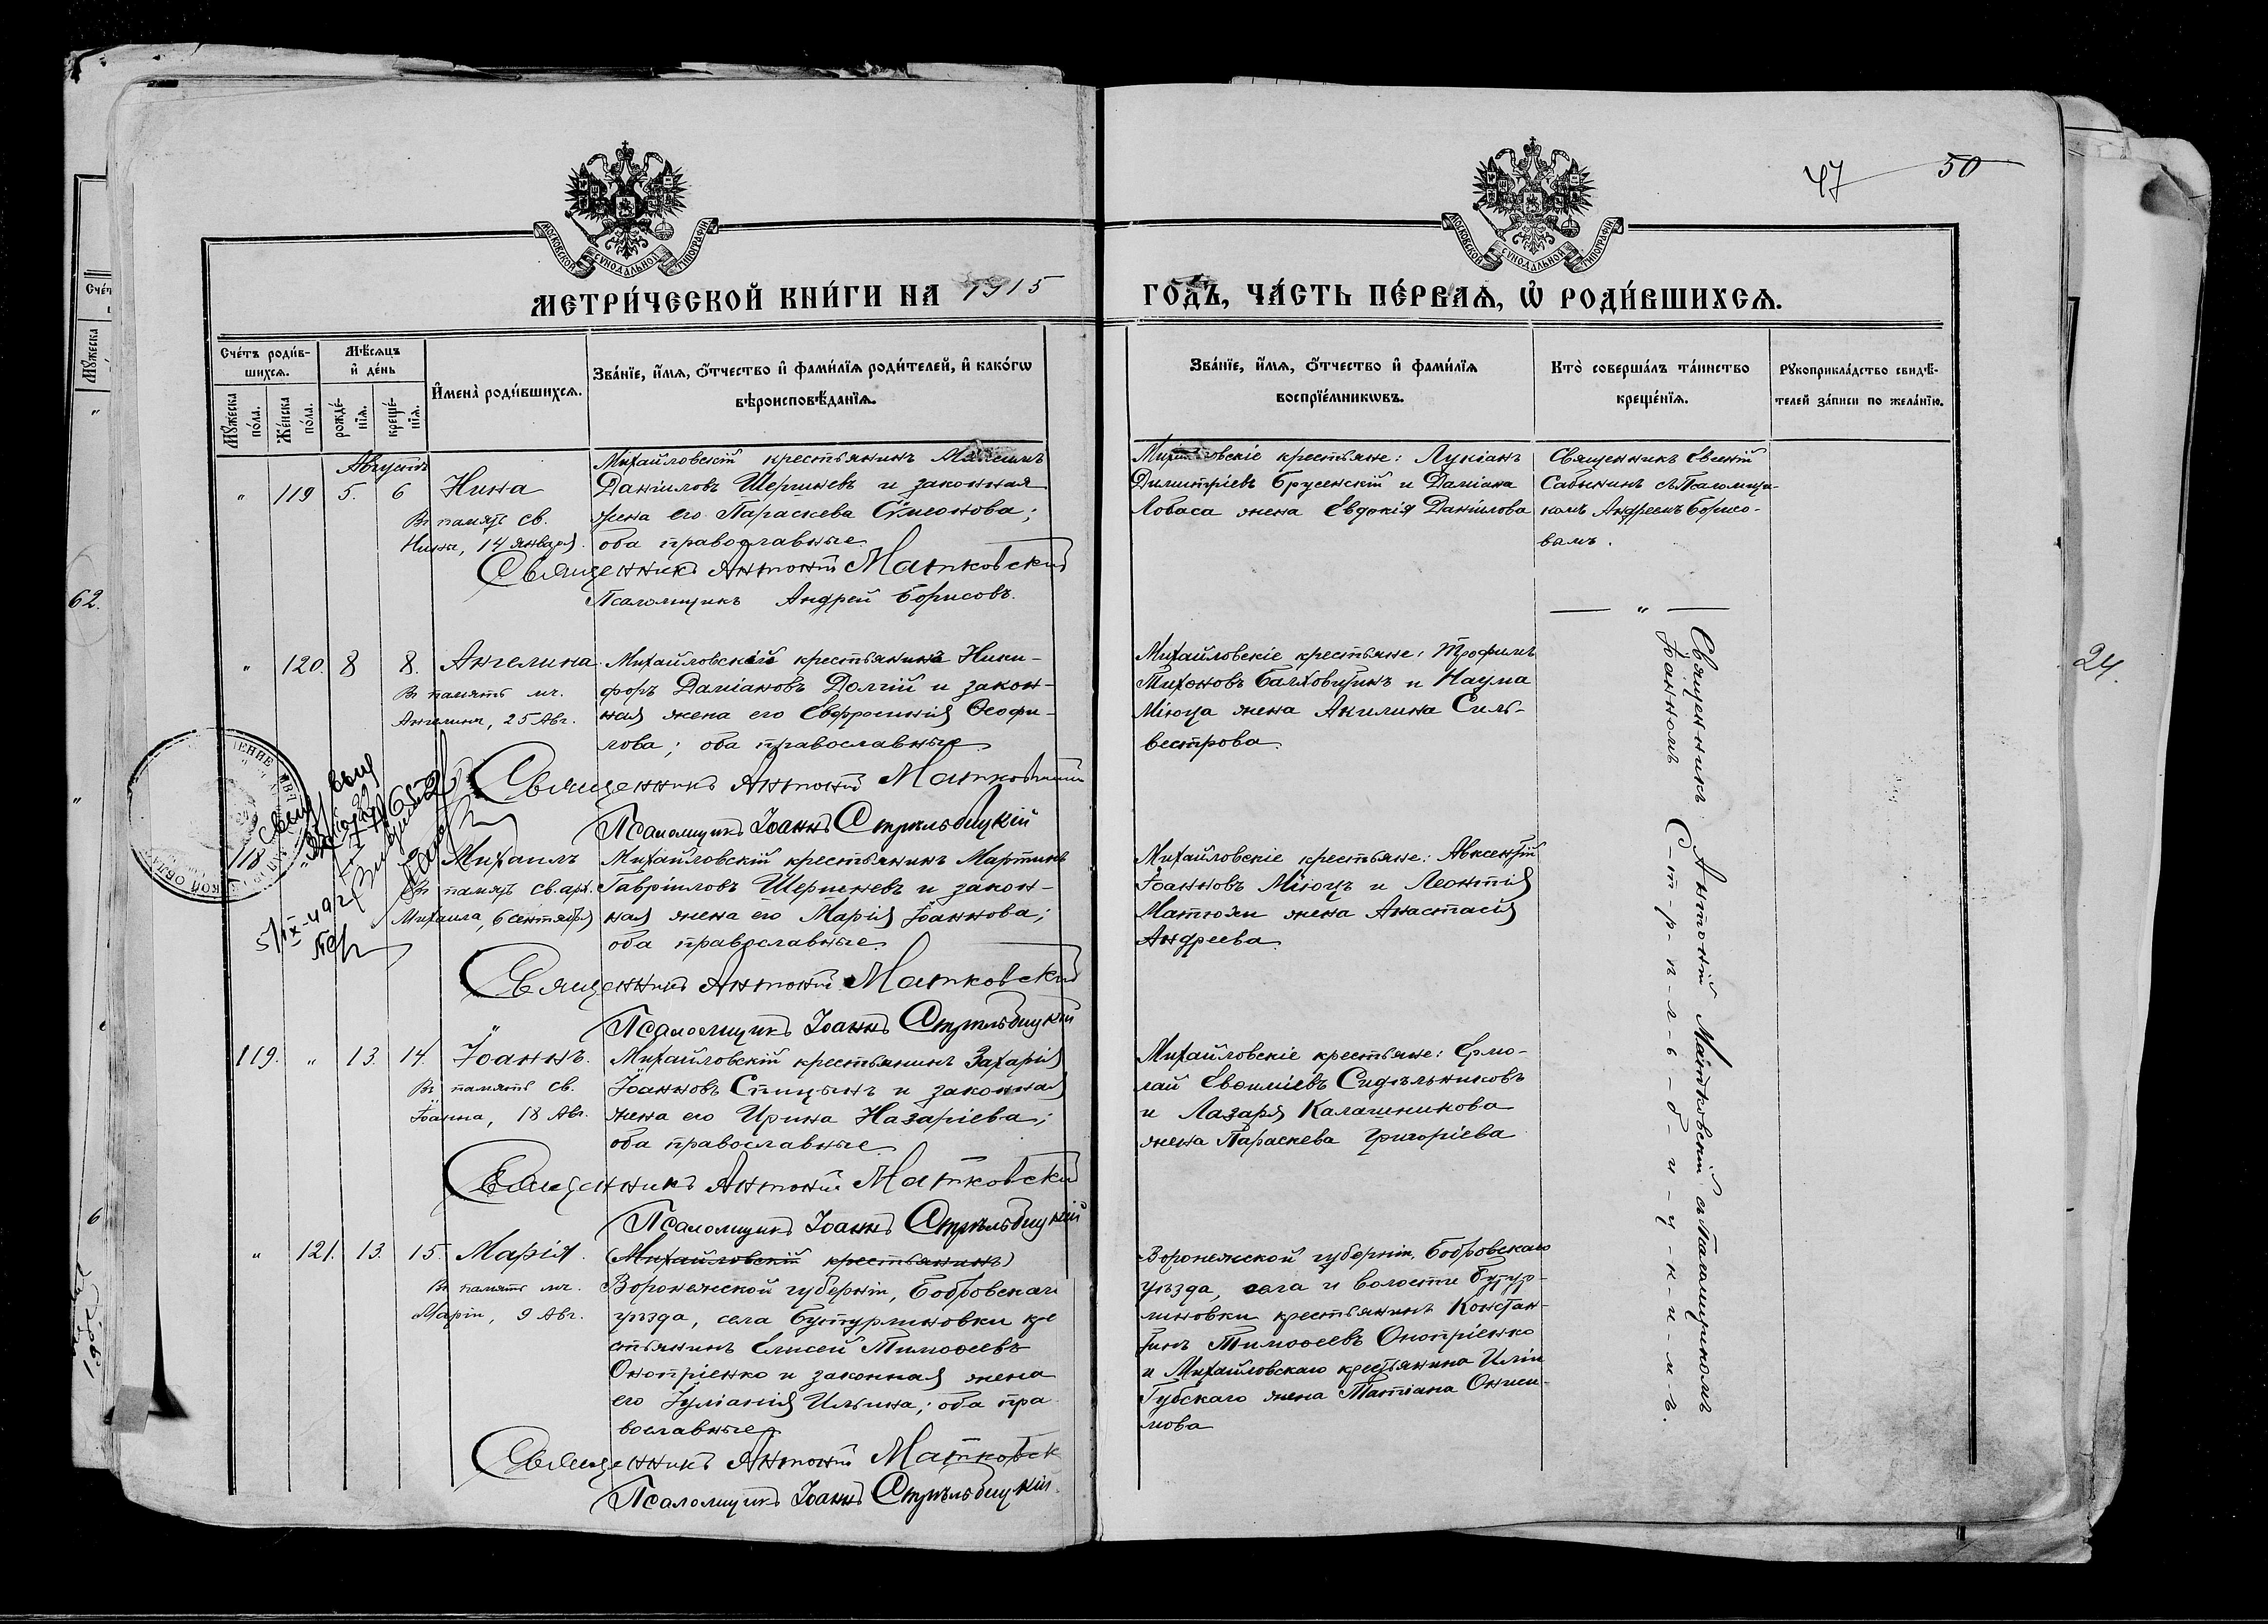 47 50
МОСКОВСКОЙ СУНОДАЛЬНОЙ ТИПОГРАФІИ
МОСКОВСКОЙ СУНОДАЛЬНОЙ ТИПОГРАФІИ
МЕТРИ́ЧЕСКОЙ КНИ́ГИ НА 1915
ГО́ДЪ, ЧА́СТЬ ПЕ́РВАЯ, Ѡ҆ РОДИ́ВШИХСѦ.
Сче́тъ роди́в-
шихсѧ.
Мѣ́сѧцъ
и҆ де́нь
Мꙋ́жеска по́ла.
Же́нска по́ла.
рожде́-
нїѧ.
креще́-
нїѧ.
И҆мена̀ роди́вшихсѧ.
Зва́нїе, и҆́мѧ, ѻ҆́тчество и҆ фами́лїѧ роди́телей, и҆ како́гѡ
вѣроисповѣ́данїѧ.
Зва́нїе, и҆́мѧ, ѻ҆́тчество и҆ фами́лїѧ
воспрїе́мникѡвъ.
Кто̀ соверша́лъ та́инство
креще́нїѧ.
Рꙋкоприкла́дство свидѣ́-
телей за́писи по жела́нїю.
Августъ
" 119 5. 6 Нина
Въ память св.
Нины, 14 января.
Михайловскій крестьянинъ
Даніиловъ Шершневъ и законная
жена его Параскева Сѵмеонова;
оба православные.
Священникъ Антоній Матковскій
Псаломщикъ Андрей Борисовъ.
Михайловскіе крестьяне: Лукіанъ
Димитріевъ Брусенскій и Даміана
Лобаса жена Евдокія Даніилова
Священникъ Евгеній
Сабынинъ съ Псаломщи-
комъ Андреемъ Борисо-
вымъ.
— " —
" 120. 8 8. Ангелина.
Въ память мч.
Ангелины, 25 Авг.
Михайловскій крестьянинъ Ники-
форъ Даміановъ Долгій и закон-
ная жена его Евфросинія Ѳеофи-
лова; оба православные
Священникъ Антоній Матковскій
Псаломщикъ Іоаннъ Стрѣльбицкій
Михайловскіе крестьяне: Трофимъ
Тихоновъ Балховитинъ и Наума
Міюца жена Акилина Силь-
вестрова.
118
Михаилъ
Въ память св. арх.
Михаила, 6 сентября
Михайловскій крестьянинъ Мартинъ
Гавріиловъ Шершневъ и закон-
ная жена его Марія Іоаннова;
оба православные.
Священникъ Антоній Матковскій
Псаломщикъ Іоаннъ Стрѣльбицкій
Михайловскіе крестьяне: Авксентій
Іоанновъ Міюцъ и Леонтія
Матюхи жена Анастасія
Андреева.
119. " 13. 14. Іоаннъ.
Въ память св.
Іоанна, 18 Авг.
Михайловскій крестьянинъ Захарія
Іоанновъ Спицынъ и законная
жена его Ирина Назаріева;
оба православные
Священникъ Антоній Матковскій
Псаломщикъ Іоаннъ Стрѣльбицкій
Михайловскіе крестьяне: Ермо-
лай Евѳиміевъ Сидѣльниковъ
и Лазаря Калашникова
жена Параскева Григоріева
" 121. 13. 15. Марія.
Въ память мч.
Маріи, 9 Авг.
(Михайловскій крестьянинъ)
Воронежской губерніи, Бобровскаго
уѣзда, села Бутурлиновки кре
стьянинъ Елисей Тимоѳеевъ
Оноприенко и законная жена
его Іуліанія Ильина; оба пра
вославные
Священникъ Антоній Матковск
Псаломщикъ Іоаннъ Стрѣльбицкій.
Воронежской губерніи, Бобровскаго
уѣзда, села и волости Бутур-
линовки крестьянинъ Констан-
тинъ Тимоѳеевъ Оноприенко
и Михайловскаго крестьянина Иліи
Губскаго жена Татіана Ониси-
мова
Священникъ Антоній Матковскій съ Псаломщикомъ
Іоанномъ С-т-р-ѣ-л-ь-б-и-ц-к-и-м-ъ.
62.
24.